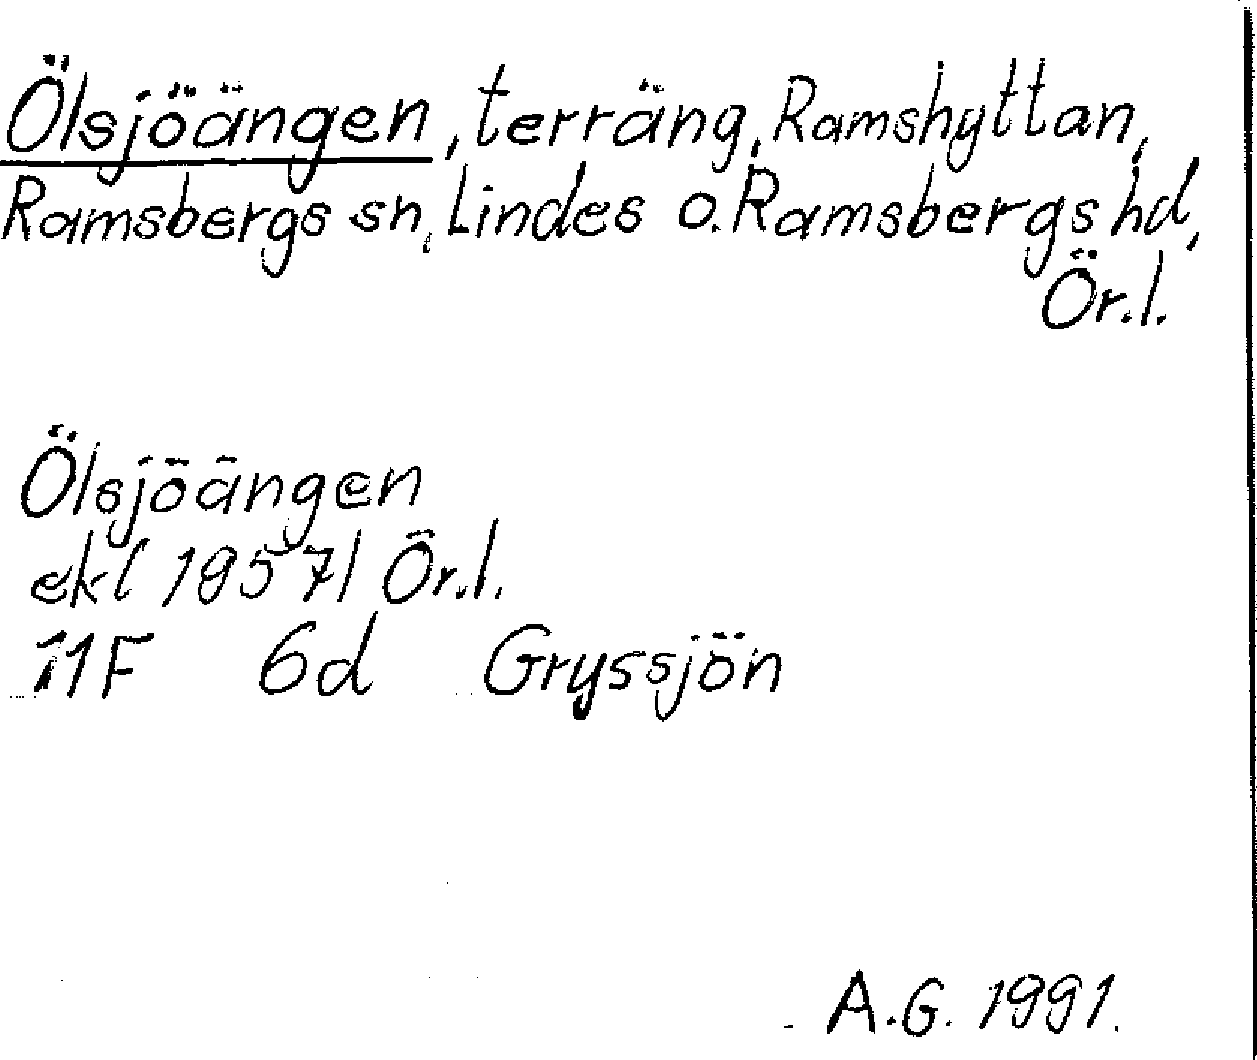 Ölsjöängen, terräng, Ramshyttan,
Ramsbergs sn, Lindes o. Ramsbergs hd,
Ör.l.
Ölsjöängen
ekl 1957l Ör.l.
11F 6d Gryssjön
A.G. 1991.